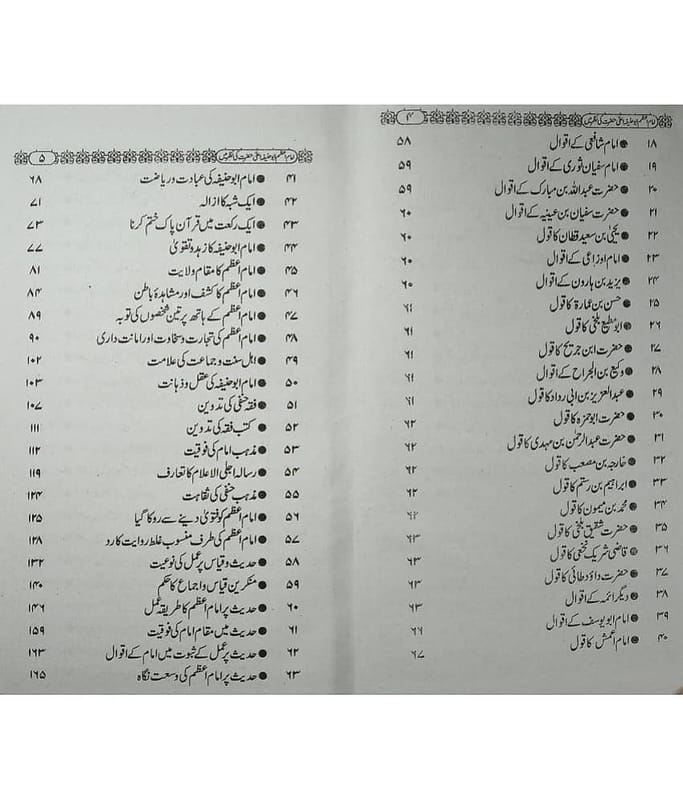 ۴ امام اعظم ابوحنیفہ اعلیٰ حضرت کی نظر میں
۱۸ ● امام شافعی کے اقوال ۵۸
۱۹ ● امام سفیان ثوری کے اقوال ۵۹
۲۰ ● حضرت عبداللہ بن مبارک کے اقوال ۵۹
۲۱ ● حضرت سفیان بن عیینہ کے اقوال ۶۰
۲۲ ● یحییٰ بن سعید قطان کا قول ۶۰
۲۳ ● امام اوزاعی کے اقوال ۶۰
۲۴ ● یزید بن ہارون کے اقوال ۶۰
۲۵ ● حسن بن عمارہ کا قول ۶۱
۲۶ ● ابو مطیع بلخی کا قول ۶۱
۲۷ ● حضرت ابن جریج کا قول ۶۱
۲۸ ● وکیع بن الجراح کے اقوال ۶۱
۲۹ ● عبدالعزیز بن ابی رواد کا قول ۶۱
۳۰ ● حضرت ابو حمزہ کا قول ۶۲
۳۱ ● حضرت عبدالرحمٰن بن مہدی کا قول ۶۲
۳۲ ● خارجہ بن مصعب کا قول ۶۲
۳۳ ● ابراہیم بن رستم کا قول ۶۲
۳۴ ● محمد بن میمون کا قول ۶۲
۳۵ ● حضرت شقیق بلخی کا قول ۶۳
۳۶ ● قاضی شریک نخعی کا قول ۶۳
۳۷ ● حضرت داؤد طائی کا قول ۶۳
۳۸ ● دیگر ائمہ کے اقوال ۶۳
۳۹ ● امام ابو یوسف کے اقوال ۶۶
۴۰ ● امام اعمش کا قول ۶۷
۵ امام اعظم ابوحنیفہ اعلیٰ حضرت کی نظر میں
۴۱ ● امام ابو حنیفہ کی عبادت و ریاضت ۶۸
۴۲ ● ایک شبہ کا ازالہ ۷۱
۴۳ ● ایک رکعت میں قرآن پاک ختم کرنا ۷۳
۴۴ ● امام ابو حنیفہ کا زہد و تقویٰ ۷۷
۴۵ ● امام اعظم کا مقام ولایت ۸۱
۴۶ ● امام اعظم کا کشف اور مشاہدۂ باطن ۸۴
۴۷ ● امام اعظم کے ہاتھ پر تین شخصوں کی توبہ ۸۹
۴۸ ● امام اعظم کی تجارت و سخاوت اور امانت داری ۹۰
۴۹ ● اہل سنت و جماعت کی علامت ۱۰۲
۵۰ ● امام ابو حنیفہ کی عقل و ذہانت ۱۰۳
۵۱ ● فقہ حنفی کی تدوین ۱۰۷
۵۲ ● کتب فقہ کی تدوین ۱۱۱
۵۳ ● مذہب امام کی فوقیت ۱۱۲
۵۴ ● رسالہ اجلی الاعلام کا تعارف ۱۱۹
۵۵ ● مذہب حنفی کی ثقاہت ۱۲۴
۵۶ ● امام اعظم کو فتویٰ دینے سے روکا گیا ۱۲۵
۵۷ ● امام اعظم کی طرف منسوب غلط روایت کا رد ۱۲۸
۵۸ ● حدیث و قیاس پر عمل کی نوعیت ۱۳۲
۵۹ ● منکرین قیاس و اجماع کا حکم ۱۴۰
۶۰ ● حدیث پر امام اعظم کا طریقہ عمل ۱۴۶
۶۱ ● حدیث میں مقام امام کی فوقیت ۱۵۹
۶۲ ● حدیث پر عمل کے ثبوت میں امام کے اقوال ۱۶۳
۶۳ ● حدیث پر امام اعظم کی وسعت نگاہ ۱۶۵